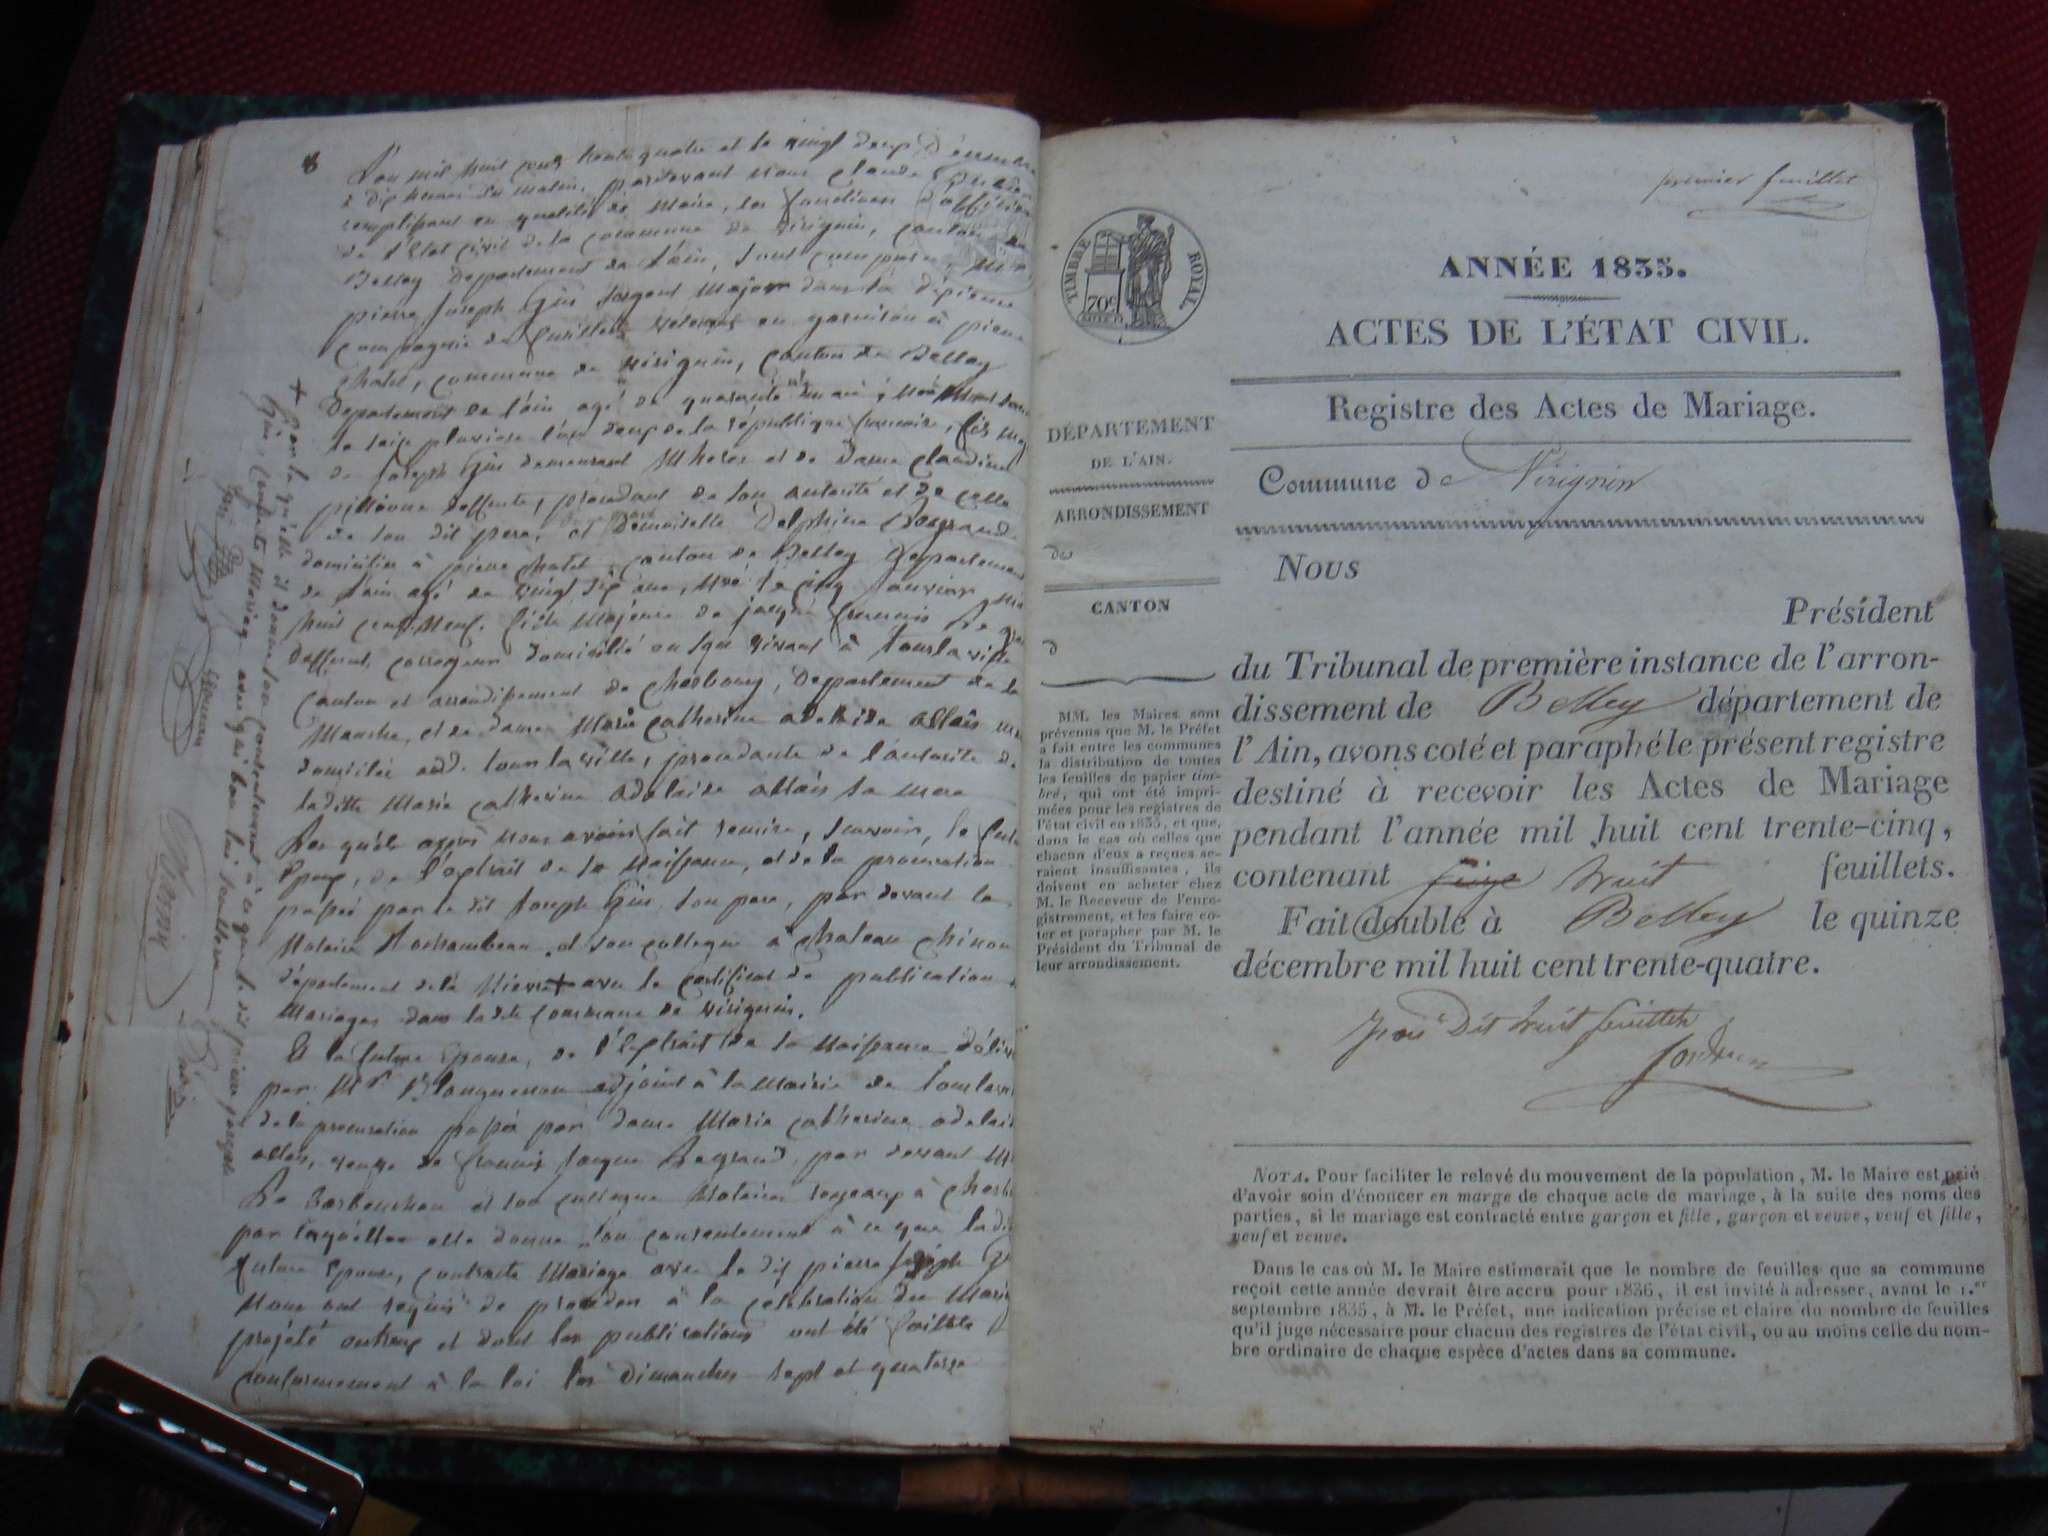 8
L'an mil huit cent trente quatre et le vingt deux Décembre
à dix heures du matin, pardevant nous Claude
remplissant en qualité de Maire, les fonctions d'officier
de l'Etat civil de la commune de virignin, canton de
Belley Département de l'ain, sont comparus,
pierre Joseph Gin sergent Major dans la dixieme
compagnie de fusilliers vétérans en garnison à pierre
chatel, commune de virignin, canton de Belley
Département de l'ain agé de quarante un an;
le seize pluviose l'an deux de la république francaise, fils
de Joseph Gin demeurant et de Dame Claudine
deffunte, procédant de son autorité et de celle
de son dit pere, et Demoiselle Delphine Legrand
domiciliée à pierre chatel, canton de Belley Département
de l'ain agé de vingt six ans, née le cinq Janvier mil
huit cent neuf. fille Majeure de jacque francois Le
deffunt, domicilié en son vivant à tourlaville
canton et arrondissement de cherbourg, Département de la
Manche, et de dame Marie catherine adelaide allais
domiciliée audt tourlaville, procedante de l'autorité de
laditte Marie catherine adelaide allais sa mere
Lesquels après nous avoir fait remise, scavoir, le futur
Epoux, de l'extrait de sa Naissance, et de la procuration
passée par le dit Joseph Gin son pere, par devant le
Notaire et son collegue à chateau chinon
département de la Nievre + avec le certificat de publication de
Mariages dans la dte commune de virignin.
Et la future Epouse, de l'Extrait de sa Naissance délivré
par Mr adjoint à la Mairie de tourlaville
de la procuration passée par dame Marie catherine adelaide
allais, veuve de francois Jacque Legrand, par devant
Le et son collegue Notaires royeaux à cherbourg
par laquelle elle donne son consentement à ce que la dite
future Epouse, contracte Mariage avec le dit pierre Joseph Gin
Nous ont requis de proceder à la célébration du Mariage
projété entreux et dont les publications ont été faittes
Conformement à la loi les dimanches sept et quatorze
+ par laquelle il donne son consentement à ce que le dit pierre joseph
Gin, contracte Mariage avec qui bon lui semblera
premier feuillet
TIMBRE ROYAL
70c
ANNÉE 1835.
ACTES DE L'ÉTAT CIVIL.
Registre des Actes de Mariage.
DÉPARTEMENT
DE L'AIN.
ARRONDISSEMENT
de
CANTON
d
MM. les Maires sont
prévenus que M. le Préfet
a fait entre les communes
la distribution de toutes
les feuilles de papier tim-
bré, qui ont été impri-
mées pour les registres de
l'état civil en 1835, et que,
dans le cas où celles que
chacun d'eux a reçues se-
raient insuffisantes, ils
doivent en acheter chez
M. le Receveur de l'enre-
gistrement, et les faire co-
ter et parapher par M. le
Président du Tribunal de
leur arrondissement.
Commune de Virignin
Nous
Président
du Tribunal de première instance de l'arron-
dissement de Belley département de
l'Ain, avons coté et paraphé le présent registre
destiné à recevoir les Actes de Mariage
pendant l'année mil huit cent trente-cinq,
contenant huit feuillets.
Fait double à Belley le quinze
décembre mil huit cent trente-quatre.
huit feuillets
NOTA. Pour faciliter le relevé du mouvement de la population, M. le Maire est prié
d'avoir soin d'énoncer en marge de chaque acte de mariage, à la suite des noms des
parties, si le mariage est contracté entre garçon et fille, garçon et veuve, veuf et fille,
veuf et veuve.
Dans le cas où M. le Maire estimerait que le nombre de feuilles que sa commune
reçoit cette année devrait être accru pour 1836, il est invité à adresser, avant le 1.er
septembre 1835, à M. le Préfet, une indication précise et claire du nombre de feuilles
qu'il juge nécessaire pour chacun des registres de l'état civil, ou au moins celle du nom-
bre ordinaire de chaque espèce d'actes dans sa commune.